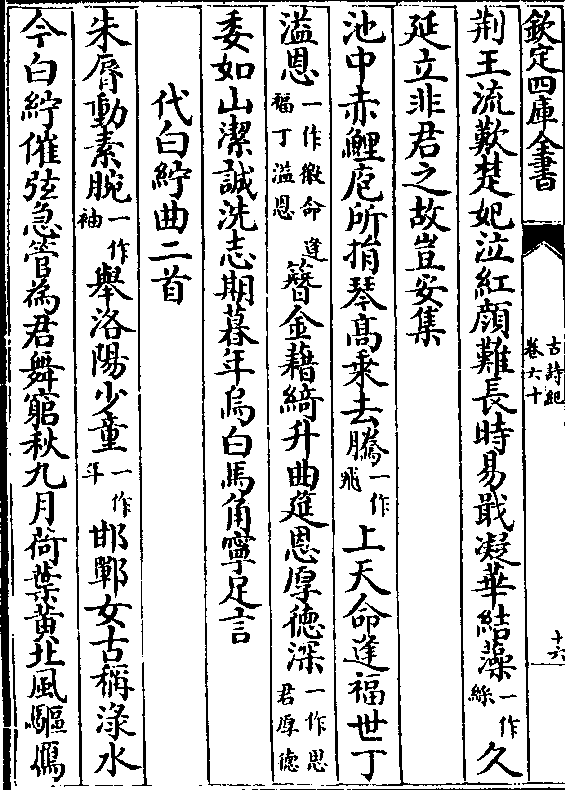 欽定四庫全書
古詩紀
卷六十
十六
荆王流歎楚妃泣紅顔難長時易戢凝華結藻一作絲久
延立非君之故豈安集
池中赤鯉庖所捐琴髙乘去騰一作飛上天命逢福世丁
溢恩一作徼命逢福丁溢恩簪金藉綺升曲筵恩厚德深一作思君厚德
委如山潔誠洗志期暮年烏白馬角寧足言
代白紵曲二首
朱脣動素腕一作袖舉洛陽少童一作年邯鄲女古稱淥水
今白紵催弦急管為君舞窮秋九月荷葉黄北風驅鴈